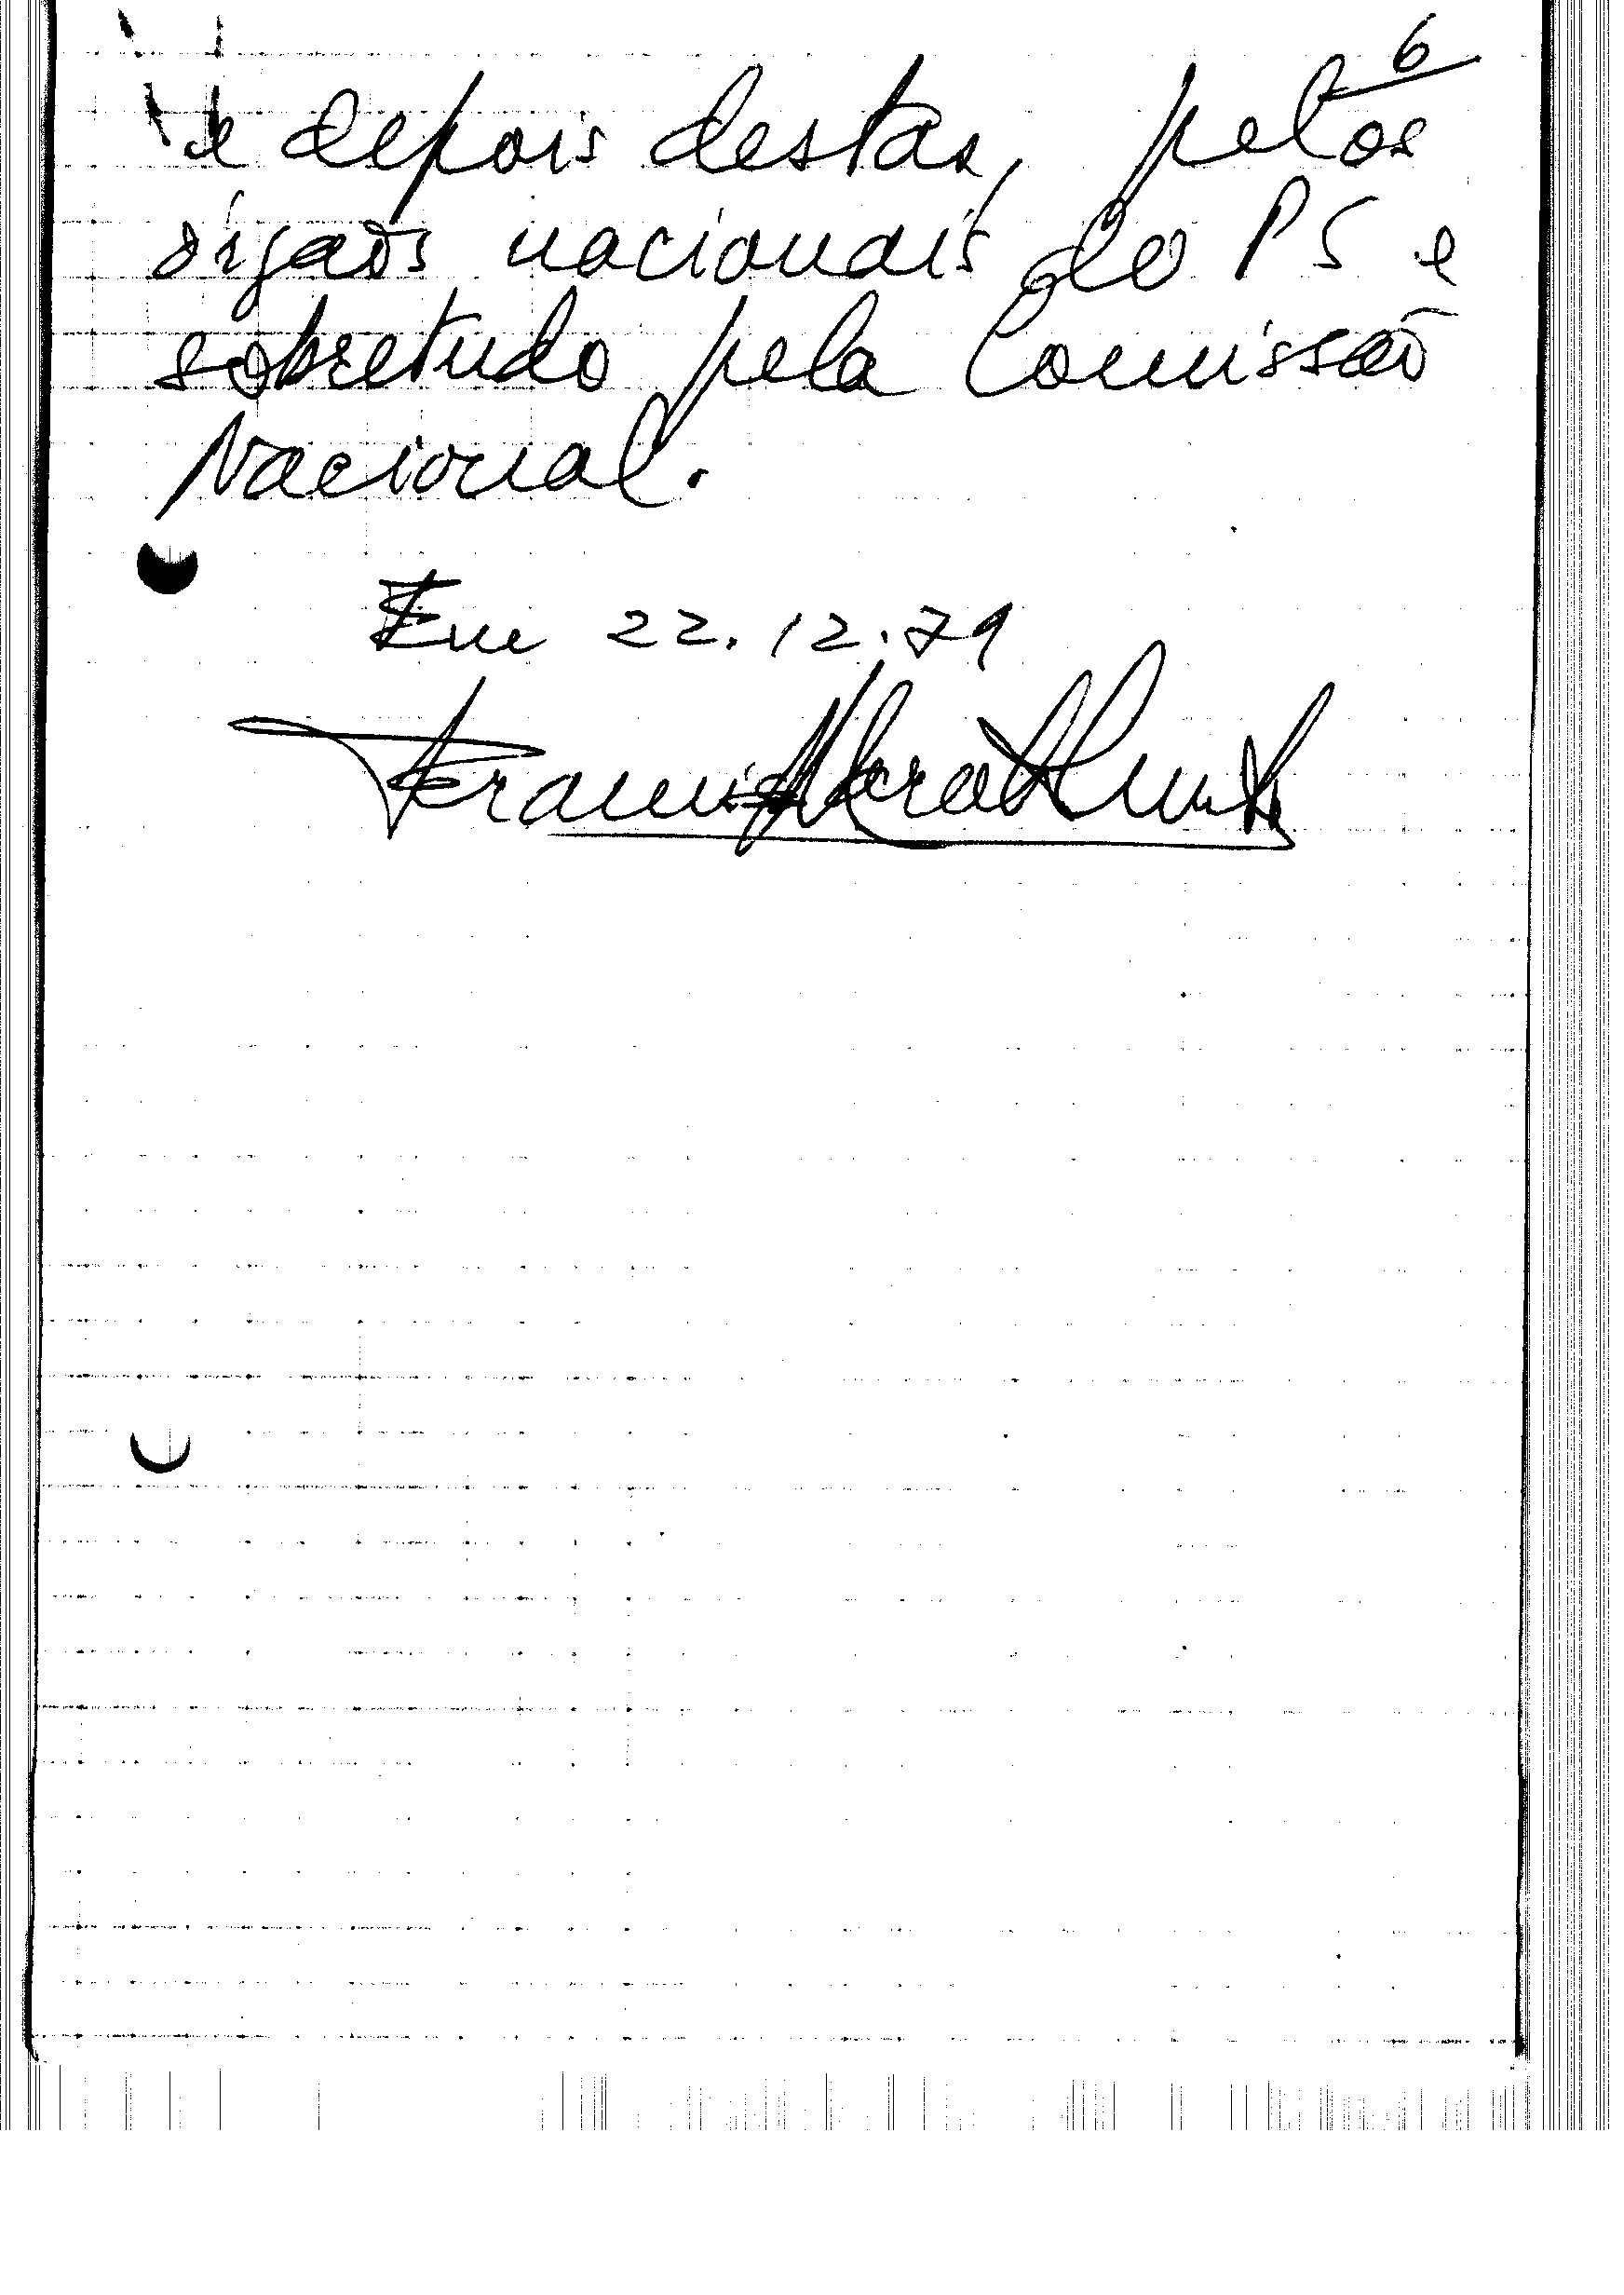 6
e depois destas, pelos
órgãos nacionais do PS e
sobretudo pela Comissão
Nacional.
Em 22.12.79